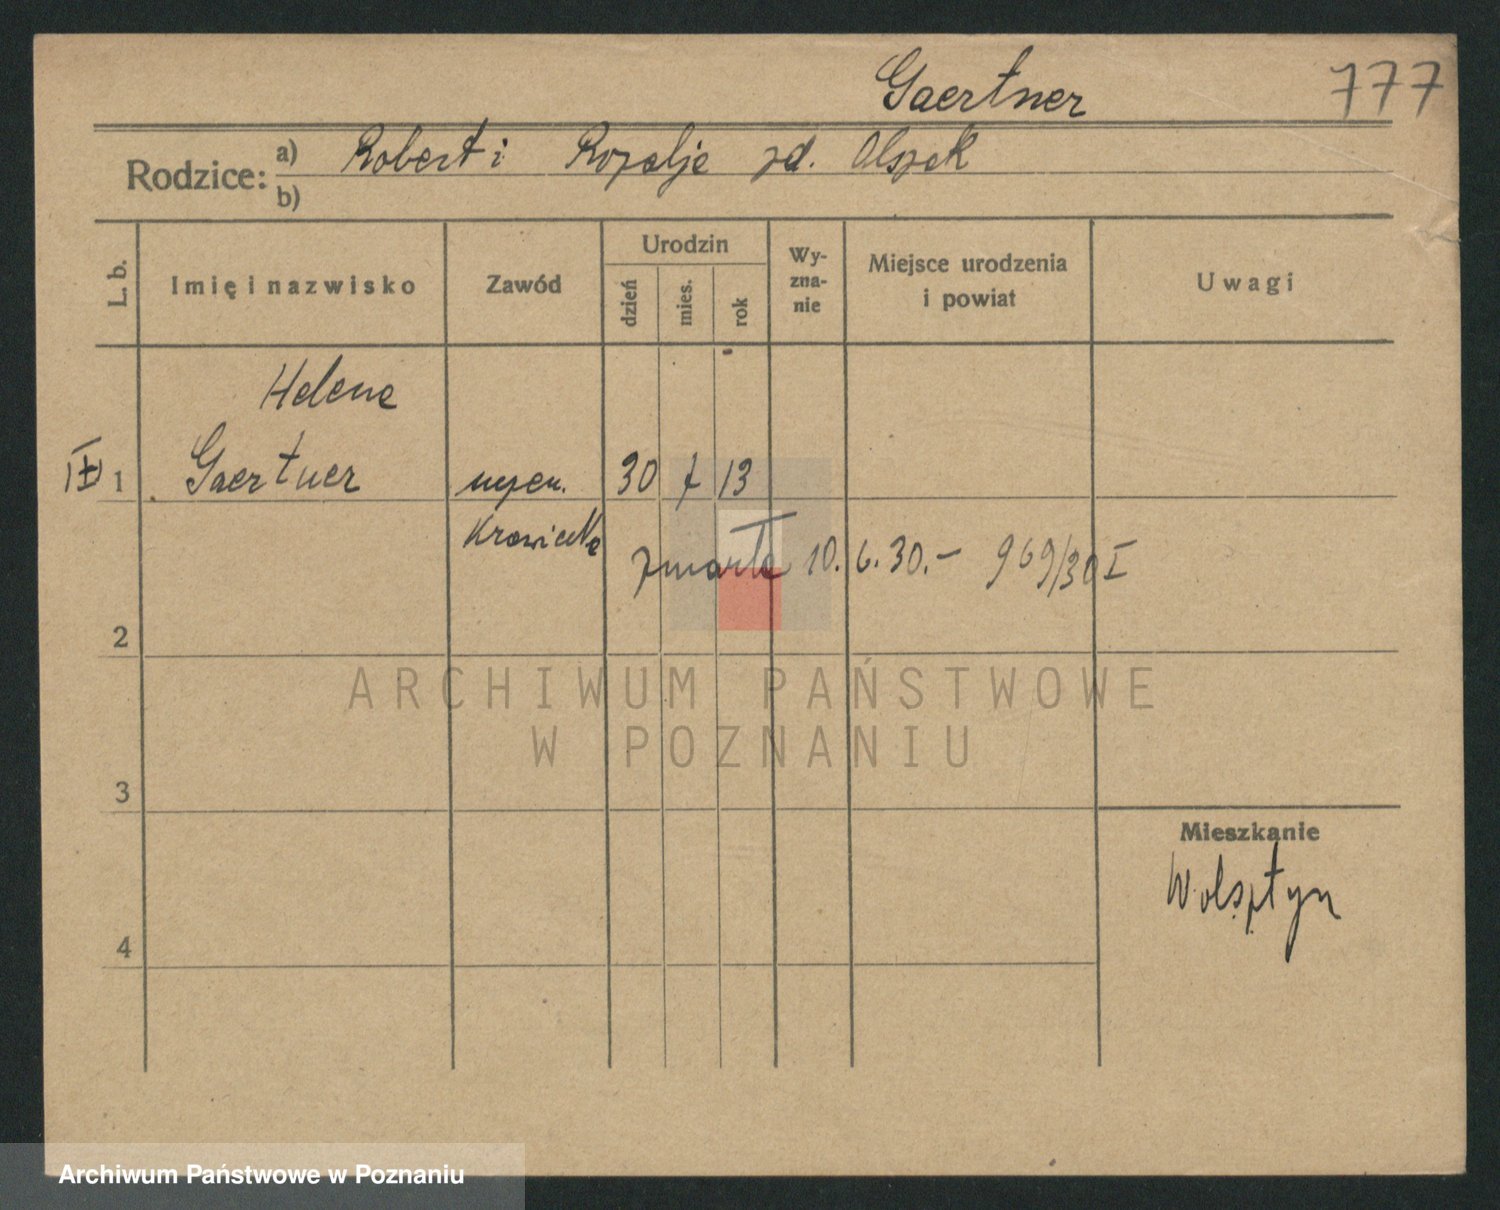 Gaertner 777
Rodzice: a) Robert i Rozalje zd. Olszak
b)
L. b. Imię i nazwisko Zawód Urodzin dzień mies. rok Wy-zna-nie Miejsce urodzenia i powiat Uwagi
Helene
1 Gaertner uczen. 30 7 13
Krawiecka
zmarła 10. 6. 30.- 969/30 I
2
ARCHIWUM PAŃSTWOWE
W POZNANIU
3
Mieszkanie
Wolsztyn
4
Archiwum Państwowe w Poznaniu